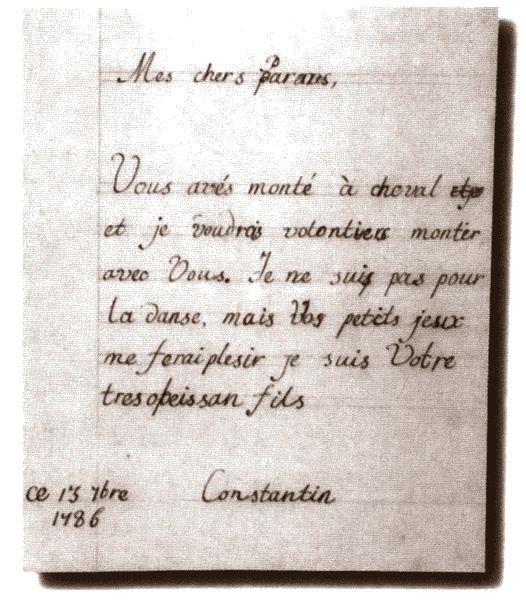 Mes chers Parans,
Vous avés monté à cheval
et je voudrois volontiers monter
avec Vous. Je ne suis pas pour
la danse, mais Vos petits jeux
me ferai plesir je suis Votre
tres obeissan fils
ce 13 7bre Constantin
1786